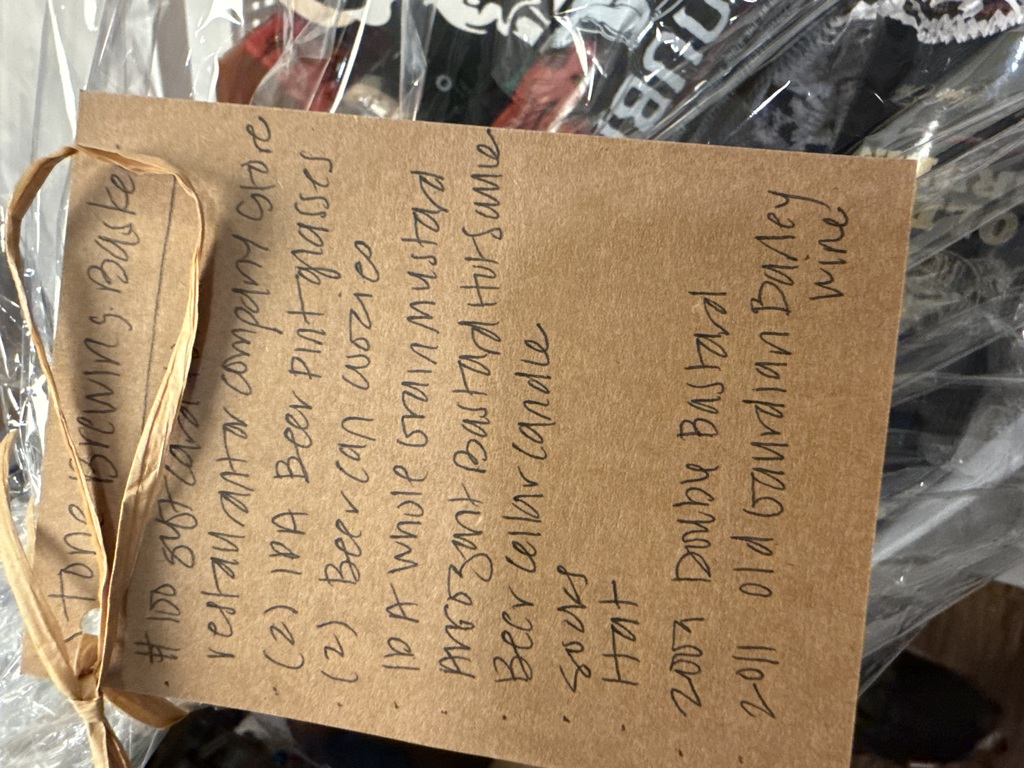 Stone Brewing Basket
$100 gift card
restaurant or company store
(2) IPA Beer pint glasses
(2) Beer can coozies
IPA Whole Grain Mustard
Arrogant Bastard Hot Sauce
Beer cellar candle
Socks
Hat
2007 Double Bastard
2011 Old Guardian Barley
Wine